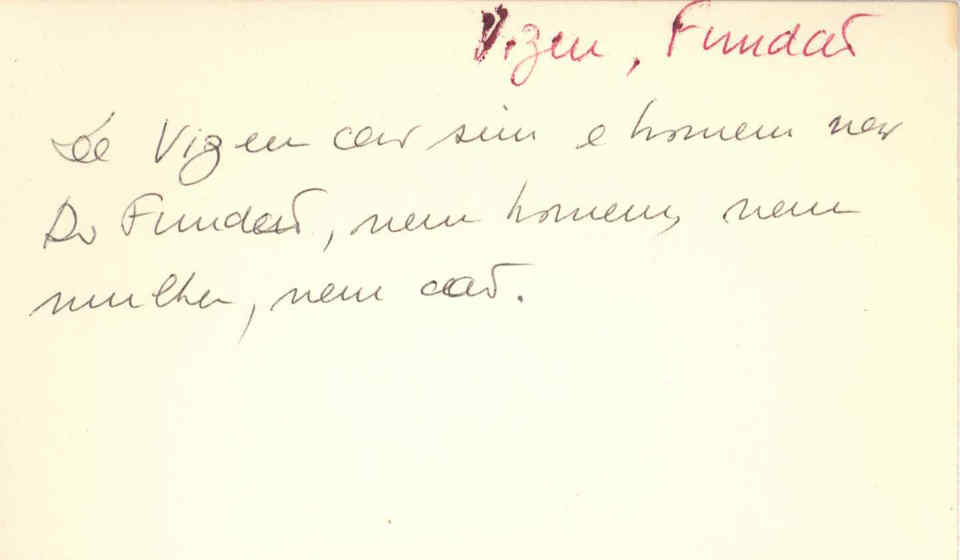 Vizeu, Fundão
De Vizeu cão sim e homem não
Do Fundão, nem homem, nem
mulher, nem cão.